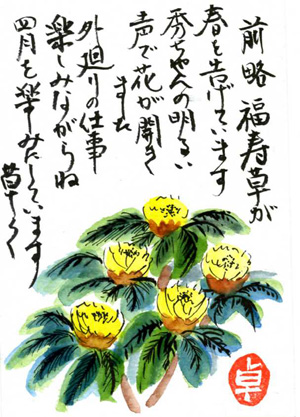 前略 福寿草が
春を告げています
秀ちゃんの明るい
声で花が開き
ました
外廻りの仕事
楽しみながらね
四月を楽しみにしています
草々
卓